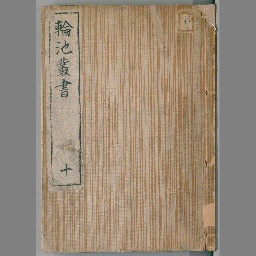 輪池叢書
十